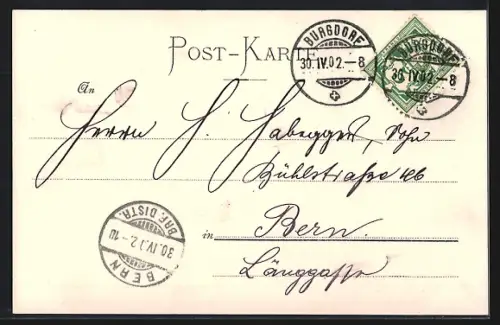 POST-KARTE
BURGDORF
30.IV.02.-8
BURGDORF
30.IV.02.-8
An
Herrn H. Habegger, Sohn
Bühlstraße 46
in Bern.
Länggasse
BERN
30.IV.02.-10
BRF. DISTR.